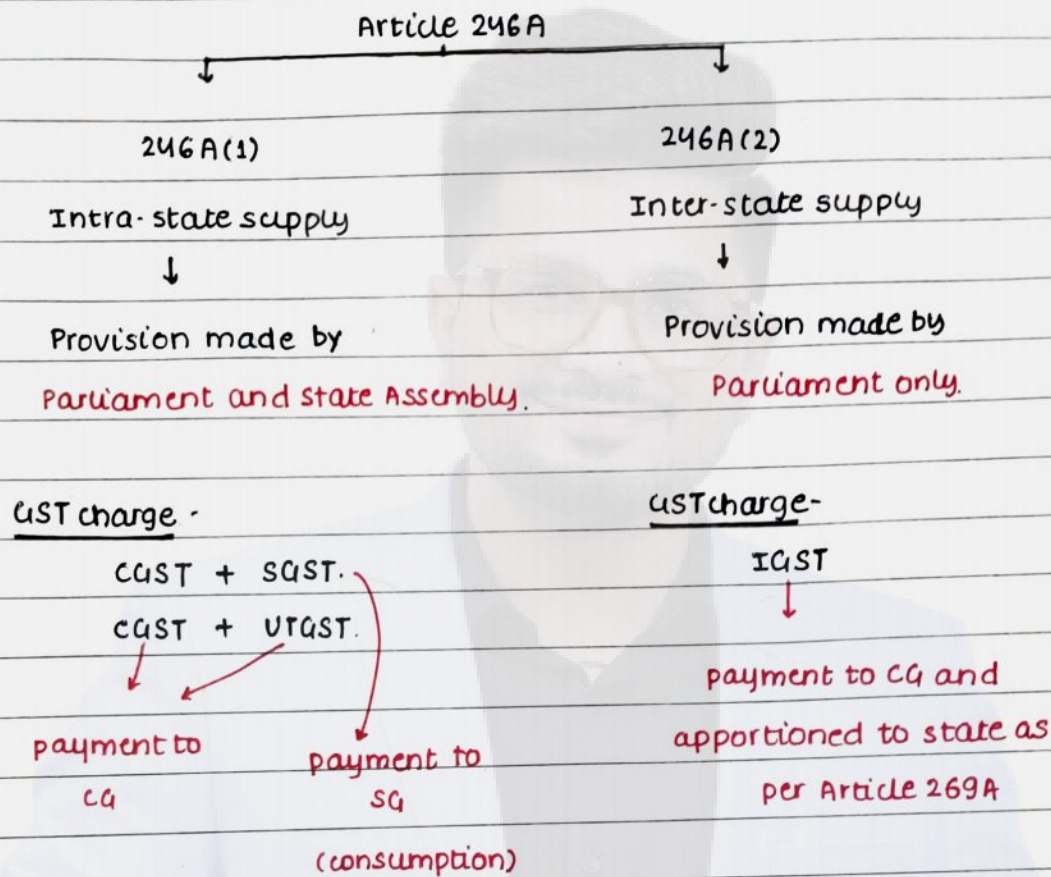 Article 246A
246A(1)
Intra-state supply
Provision made by
Parliament and State Assembly.
GST charge -
CGST + SGST.
CGST + UTGST.
payment to
CG
payment to
SG
(consumption)
246A(2)
Inter-state supply
Provision made by
Parliament only.
GST charge-
IGST
payment to CG and
apportioned to state as
per Article 269A